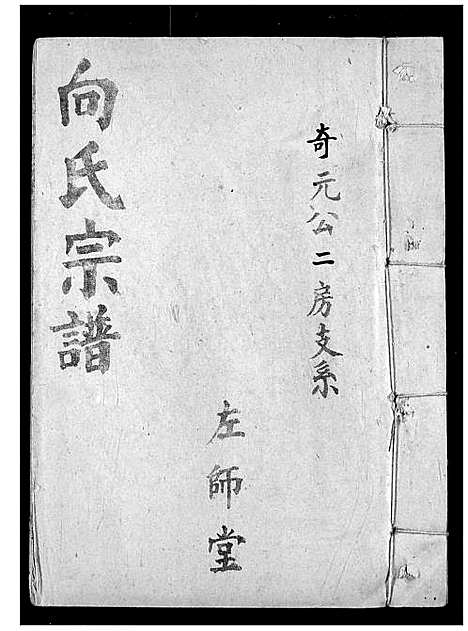 奇元公二房支系
左師堂
向氏宗譜